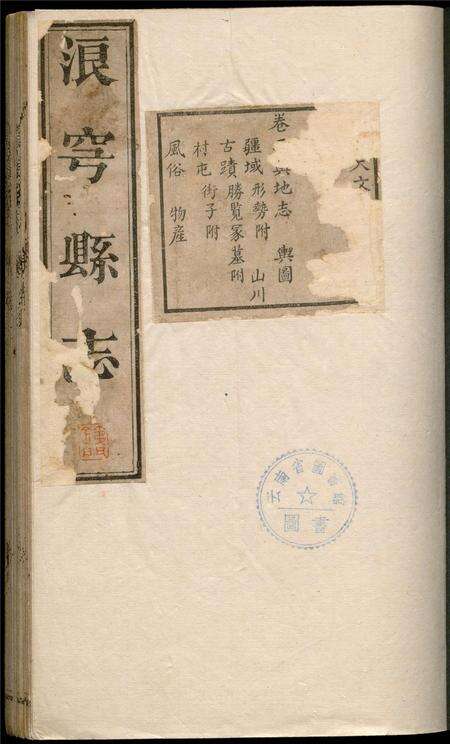 浪穹縣志
天文
卷輿地志 輿圖
疆域形勢附 山川
古蹟勝覽冢墓附
村屯街子附
風俗 物産
云南省圖書館
圖書